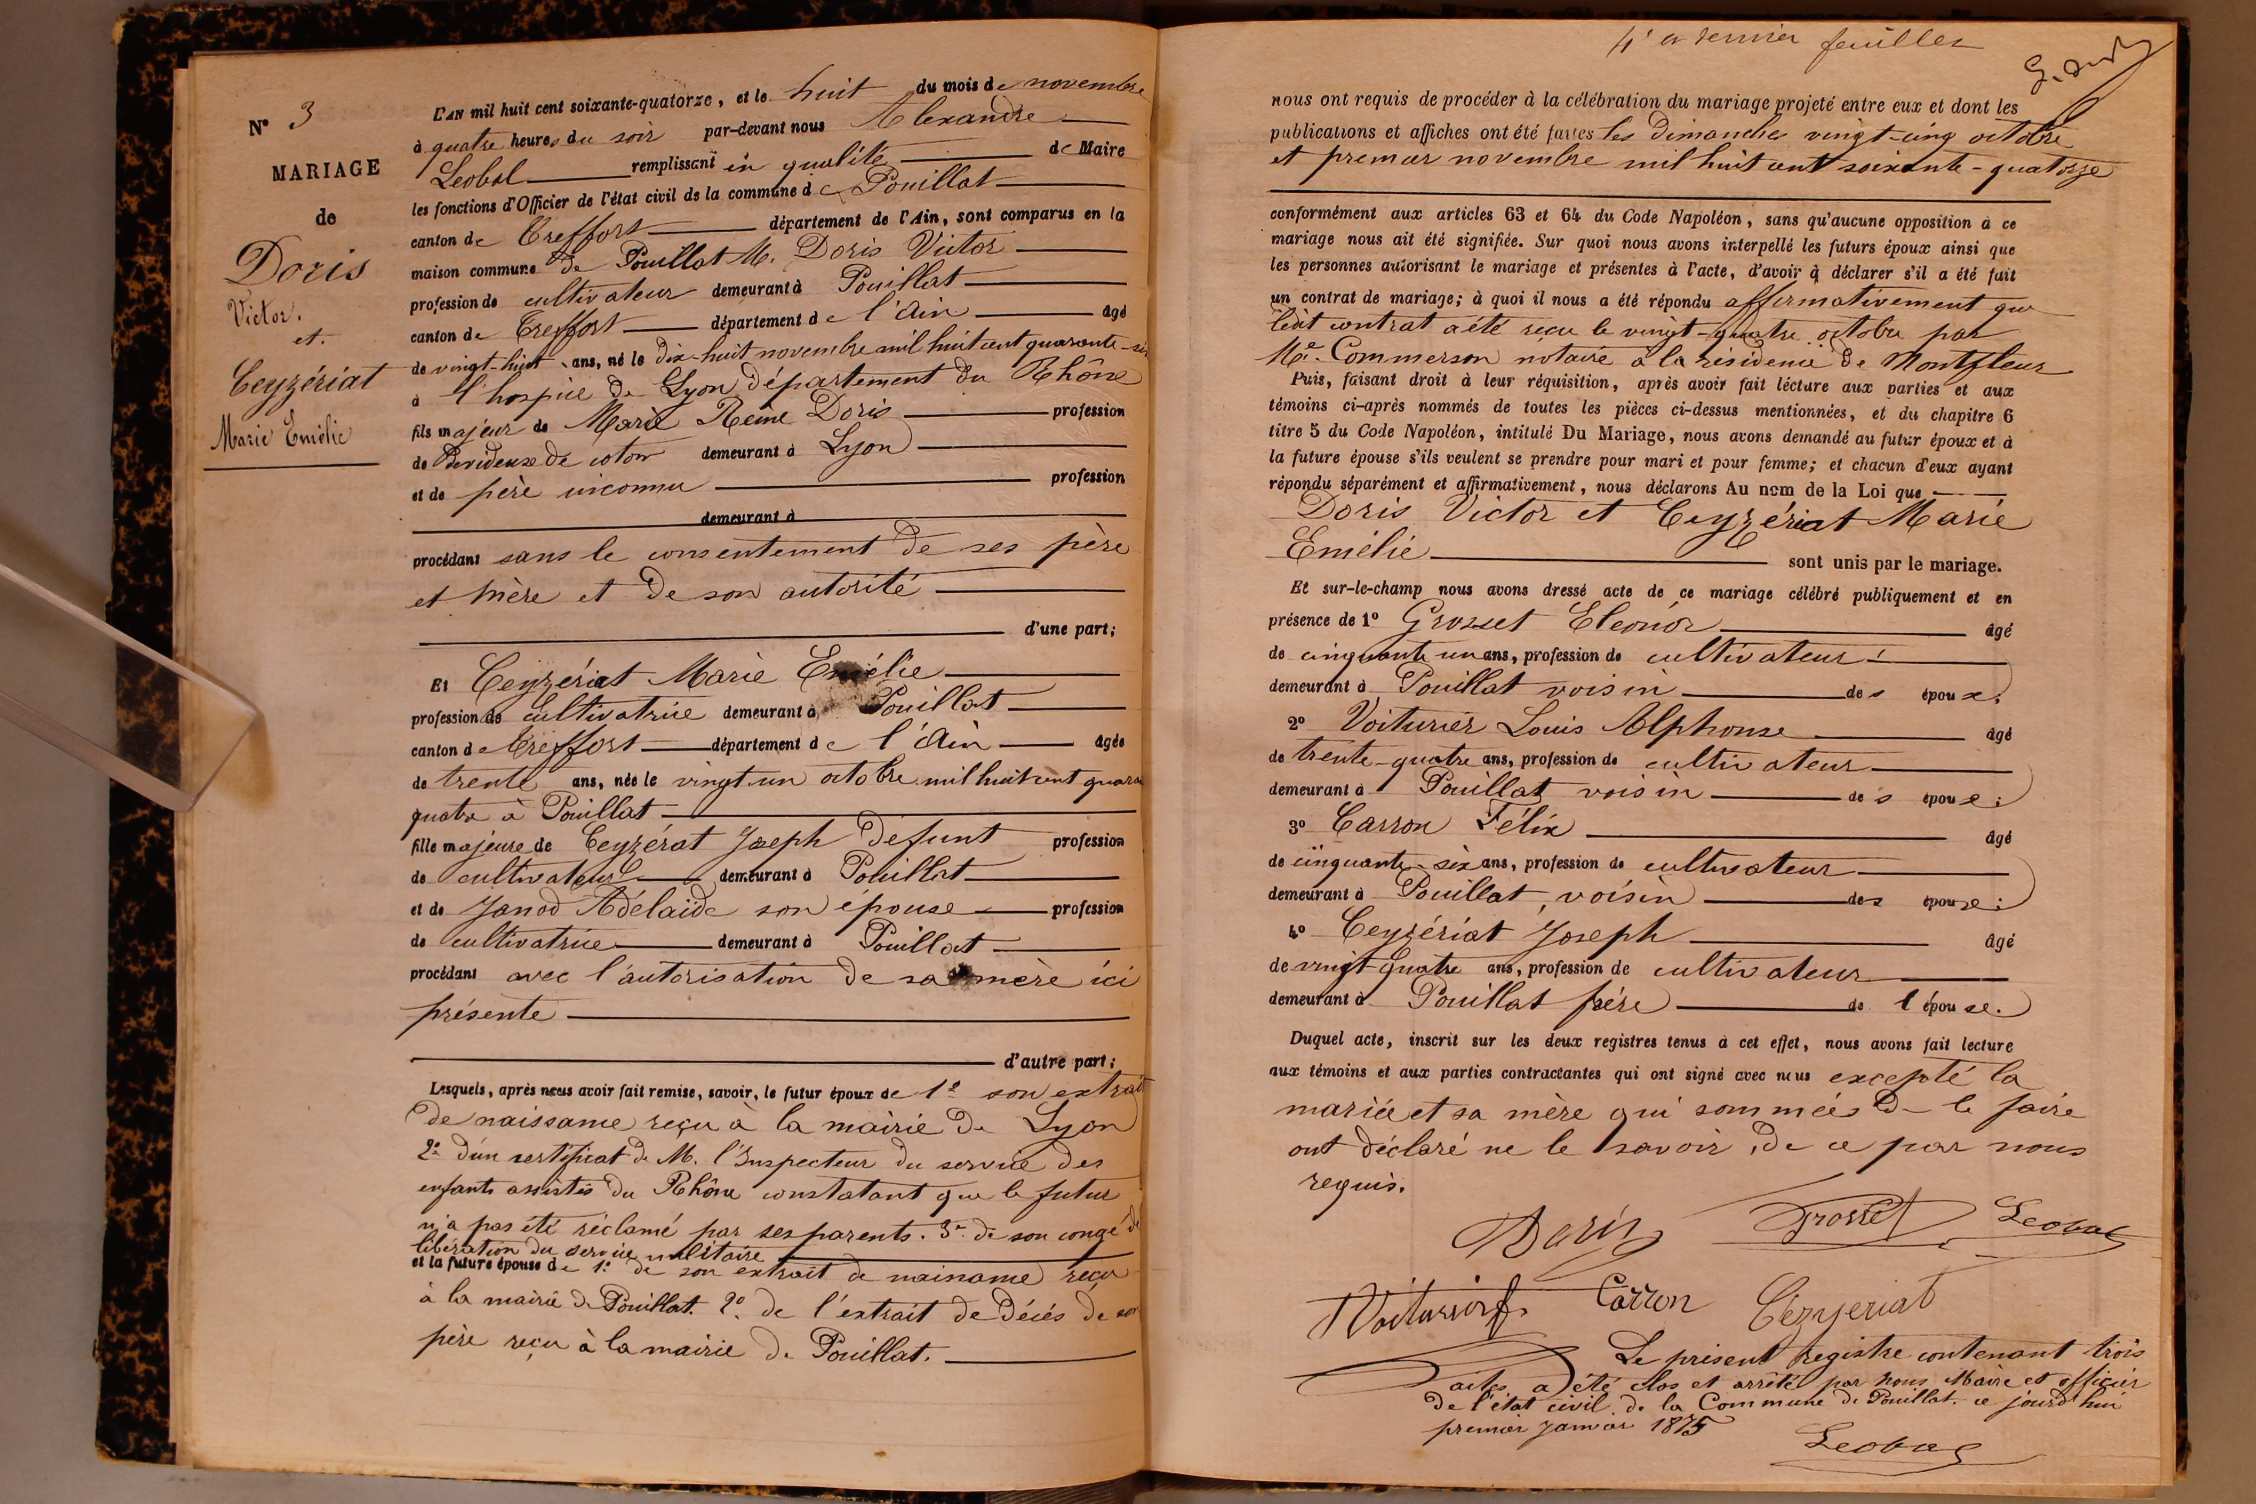 N° 3
MARIAGE
de
Doris
Victor.
et.
Ceyzériat
Marie Emélie
L'AN mil huit cent soixante-quatorze, et le huit du mois de novembre
à quatre heures du soir par-devant nous Alexandre
Leobal remplissant en qualité de Maire
les fonctions d'Officier de l'état civil de la commune de Pouillat
canton de Treffort département de l'Ain, sont comparus en la
maison commune de Pouillat M. Doris Victor
profession de cultivateur demeurant à Pouillat
canton de Treffort département de l'Ain âgé
de vingt-huit ans, né le dix-huit novembre mil huit cent quarante-six
à l'hospice de Lyon département du Rhône
fils majeur de Marie Reine Doris profession
de Devideuse de coton demeurant à Lyon
et de père inconnu profession
demeurant à
procédant sans le consentement de ses père
et mère et de son autorité
d'une part;
Et Ceyzériat Marie Emélie
profession de cultivatrice demeurant à Pouillat
canton de Treffort département de l'Ain âgée
de trente ans, née le vingt un octobre mil huit cent quara
quatre à Pouillat
fille majeure de Ceyzérat Joseph défunt profession
de cultivateur demeurant à Pouillat
et de Janod Adélaïde son épouse profession
de cultivatrice demeurant à Pouillat
procédant avec l'autorisation de sa mère ici
présente
d'autre part;
Lesquels, après nous avoir fait remise, savoir, le futur époux de 1° son extrait
de naissance reçu à la mairie de Lyon
2° d'un certificat de M. l'Inspecteur du service des
enfants assistés du Rhône constatant que le futur
n'a pas été réclamé par ses parents. 3° de son congé de
libération du service militaire
et la future épouse de 1° de son extrait de naissance reçu
à la mairie de Pouillat. 2° de l'extrait de décès de son
père reçu à la mairie de Pouillat.
4e et dernier feuillet
nous ont requis de procéder à la célébration du mariage projeté entre eux et dont les
publications et affiches ont été faites les Dimanches vingt-cinq octobre
et premier novembre mil huit cent soixante-quatorze
conformément aux articles 63 et 64 du Code Napoléon, sans qu'aucune opposition à ce
mariage nous ait été signifiée. Sur quoi nous avons interpellé les futurs époux ainsi que
les personnes autorisant le mariage et présentes à l'acte, d'avoir à déclarer s'il a été fait
un contrat de mariage; à quoi il nous a été répondu affirmativement que
ledit contrat a été reçu le vingt-quatre octobre par
Me. Commerson notaire à la résidence de Montfleur
Puis, faisant droit à leur réquisition, après avoir fait lecture aux parties et aux
témoins ci-après nommés de toutes les pièces ci-dessus mentionnées, et du chapitre 6
titre 5 du Code Napoléon, intitulé Du Mariage, nous avons demandé au futur époux et à
la future épouse s'ils veulent se prendre pour mari et pour femme; et chacun d'eux ayant
répondu séparément et affirmativement, nous déclarons Au nom de la Loi que
Doris Victor et Ceyzériat Marie
Emélie sont unis par le mariage.
Et sur-le-champ nous avons dressé acte de ce mariage célébré publiquement et en
présence de 1° Grosset Eleonor âgé
de cinquante un ans, profession de cultivateur
demeurant à Pouillat voisin des époux.
2° Voiturier Louis Alphonse âgé
de trente-quatre ans, profession de cultivateur
demeurant à Pouillat voisin des époux;
3° Carron Félix âgé
de cinquante-six ans, profession de cultivateur
demeurant à Pouillat, voisin des époux;
4° Ceyzériat Joseph âgé
de vingt-quatre ans, profession de cultivateur
demeurant à Pouillat frère de l'épouse.
Duquel acte, inscrit sur les deux registres tenus à cet effet, nous avons fait lecture
aux témoins et aux parties contractantes qui ont signé avec nous excepté la
mariée et sa mère qui sommées de le faire
ont déclaré ne le savoir, de ce par nous
requis.
Doris Grosset Leobal
Voiturier Carron Cézyeriat
Le présent registre contenant trois
actes a été clos et arrêté par nous Maire et officier
de l'état civil de la Commune de Pouillat. ce jourd'hui
premier janvier 1875
Leobal